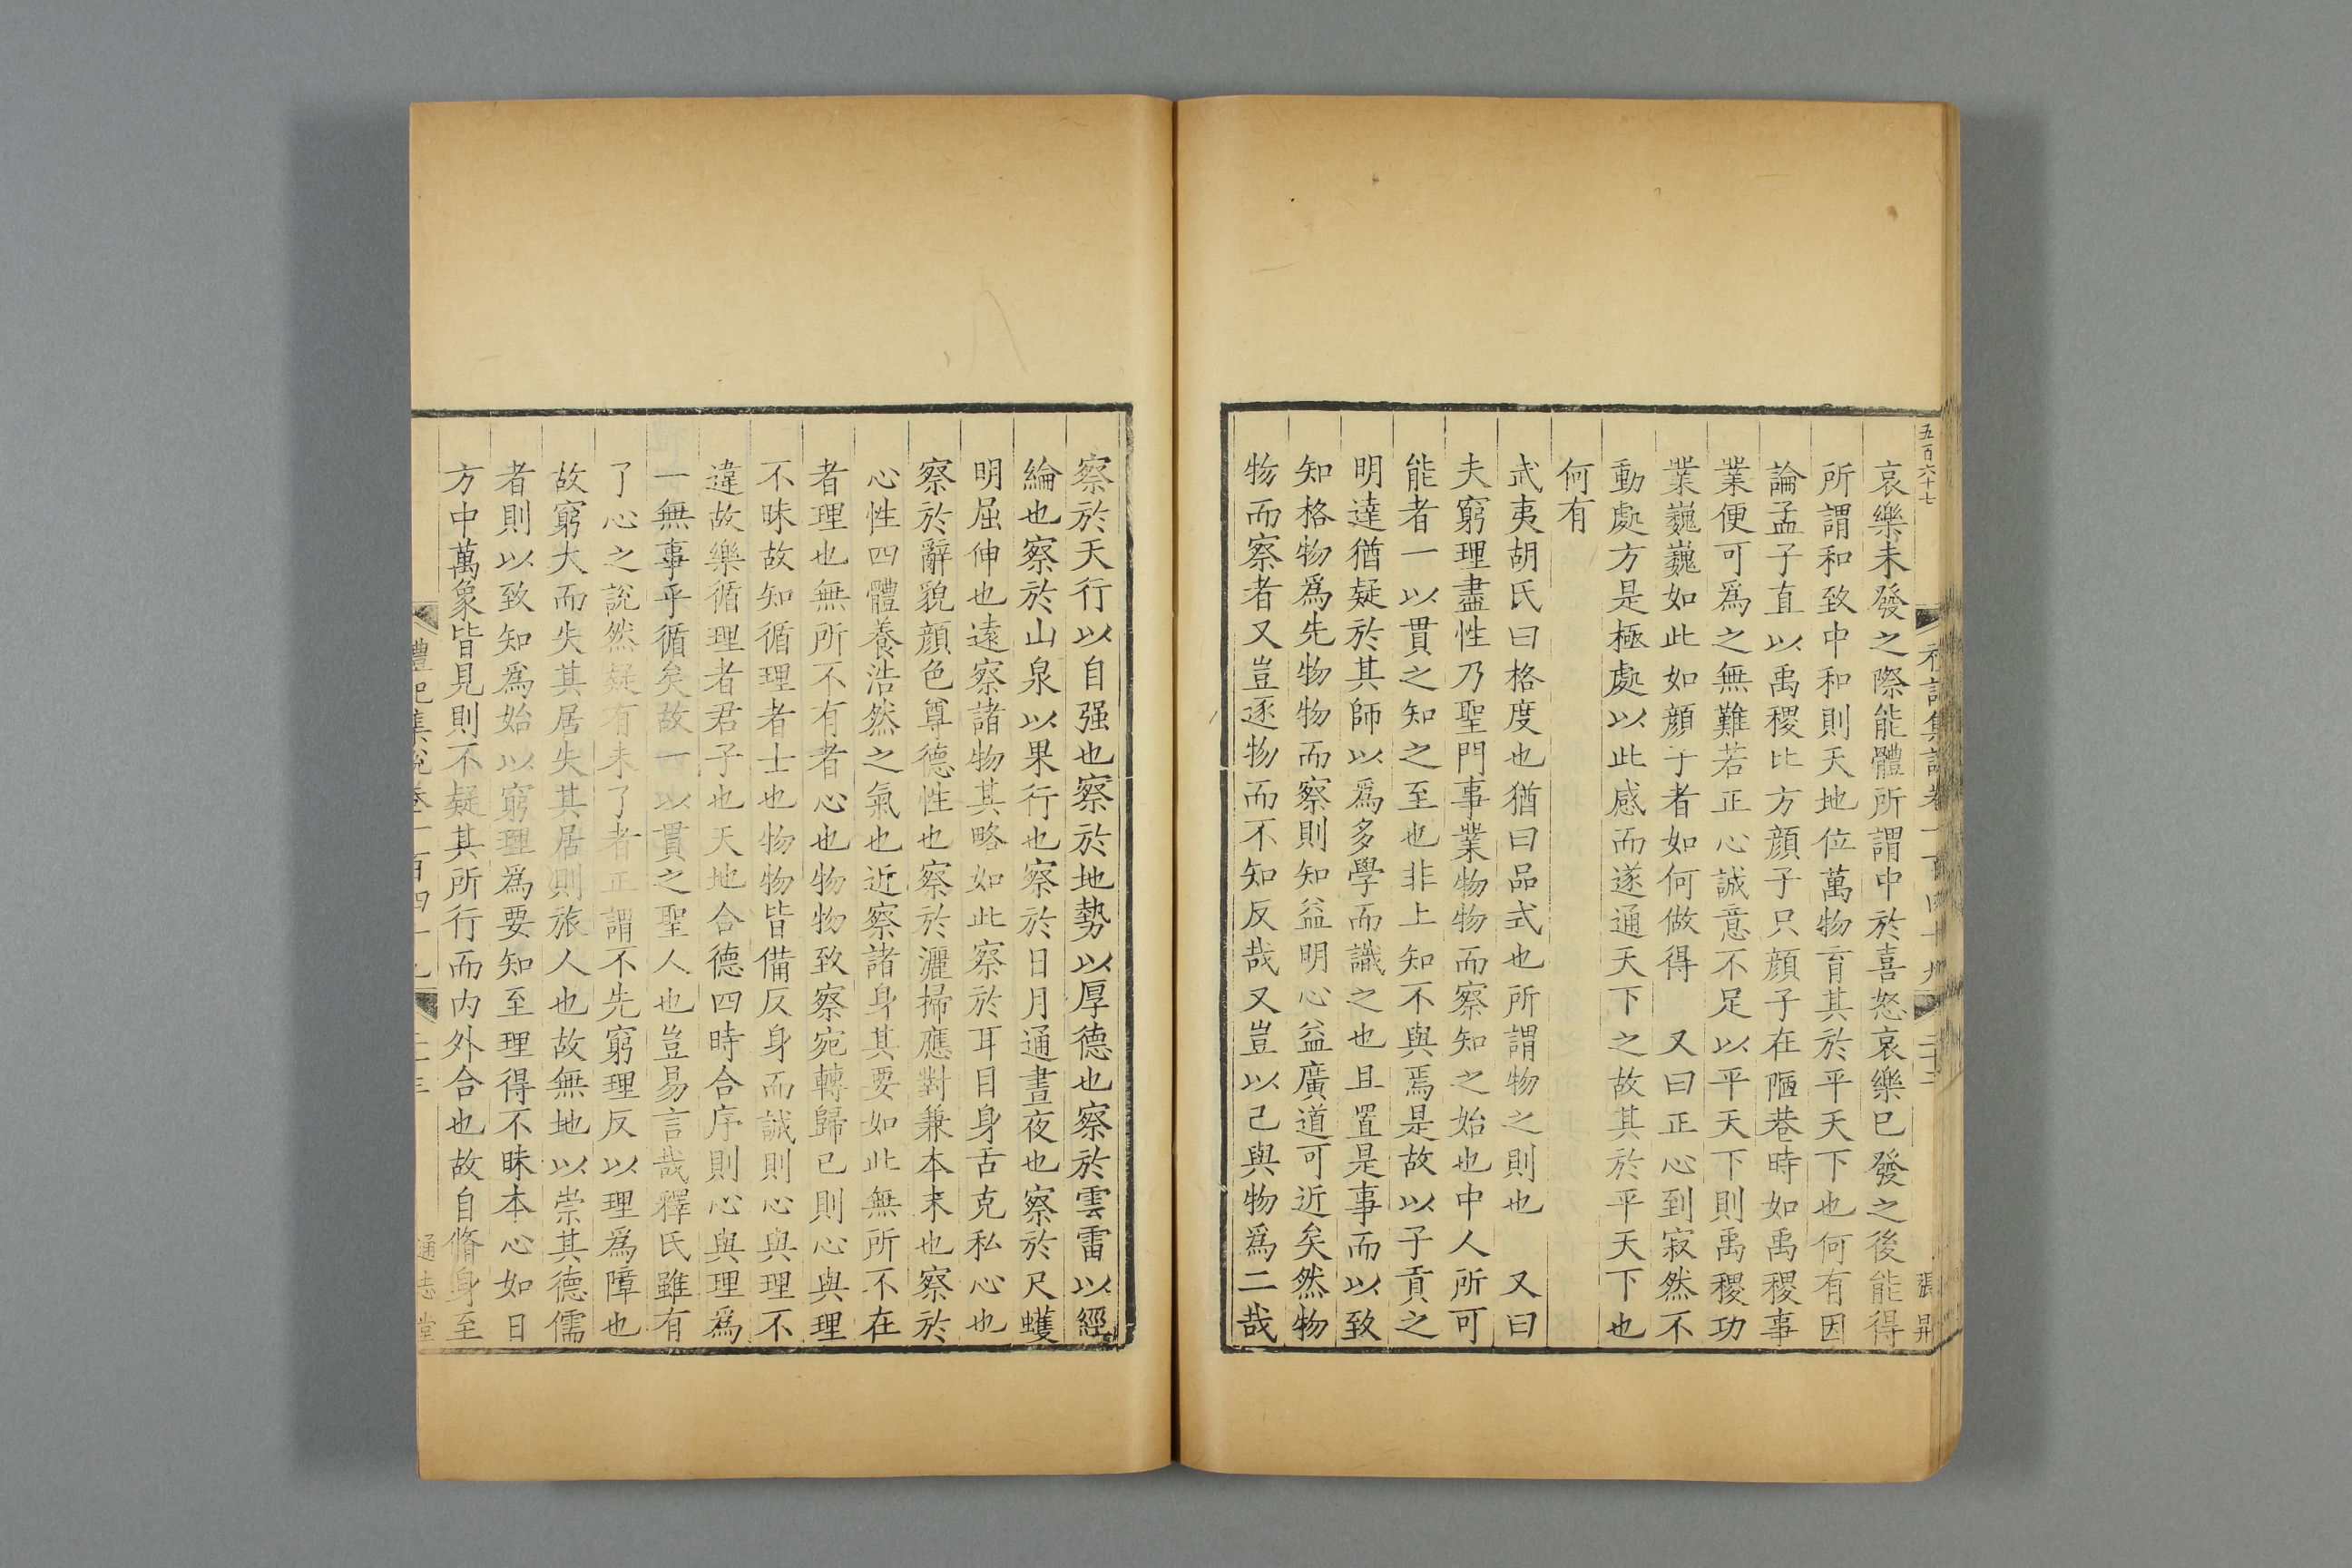 五百六十七
哀樂未發之際能體所謂中於喜怒哀樂已發之後能得
所謂和致中和則天地位萬物育其於平天下也何有因
論孟子直以禹稷比方顔子只顔子在陋巷時如禹稷事
業便可爲之無難若正心誠意不足以平天下則禹稷功
業巍巍如此如顔子者如何做得 又曰正心到寂然不
動處方是極處以此感而遂通天下之故其於平天下也
何有
武夷胡氏曰格度也猶曰品式也所謂物之則也 又曰
夫窮理盡性乃聖門事業物物而察知之始也中人所可
能者一以貫之知之至也非上知不與焉是故以子貢之
明達猶疑於其師以爲多學而識之也且置是事而以致
知格物爲先物物而察則知益明心益廣道可近矣然物
物而察者又豈逐物而不知反哉又豈以己與物爲二哉
察於天行以自强也察於地勢以厚德也察於雲雷以經
綸也察於山泉以果行也察於日月通晝夜也察於尺蠖
明屈伸也遠察諸物其略如此察於耳目身舌克私心也
察於辭貌顔色尊德性也察於灑掃應對兼本末也察於
心性四體養浩然之氣也近察諸身其要如此無所不在
者理也無所不有者心也物物致察宛轉歸已則心與理
不昧故知循理者士也物物皆備反身而誠則心與理不
違故樂循理者君子也天地合德四時合序則心與理爲
一無事乎循矣故一以貫之聖人也豈易言哉釋氏雖有
了心之說然疑有未了者正謂不先窮理反以理爲障也
故窮大而失其居失其居則旅人也故無地以崇其德儒
者則以致知爲始以窮理爲要知至理得不昧本心如日
方中萬象皆見則不疑其所行而内外合也故自脩身至
禮記集說卷一百四十九
通志堂